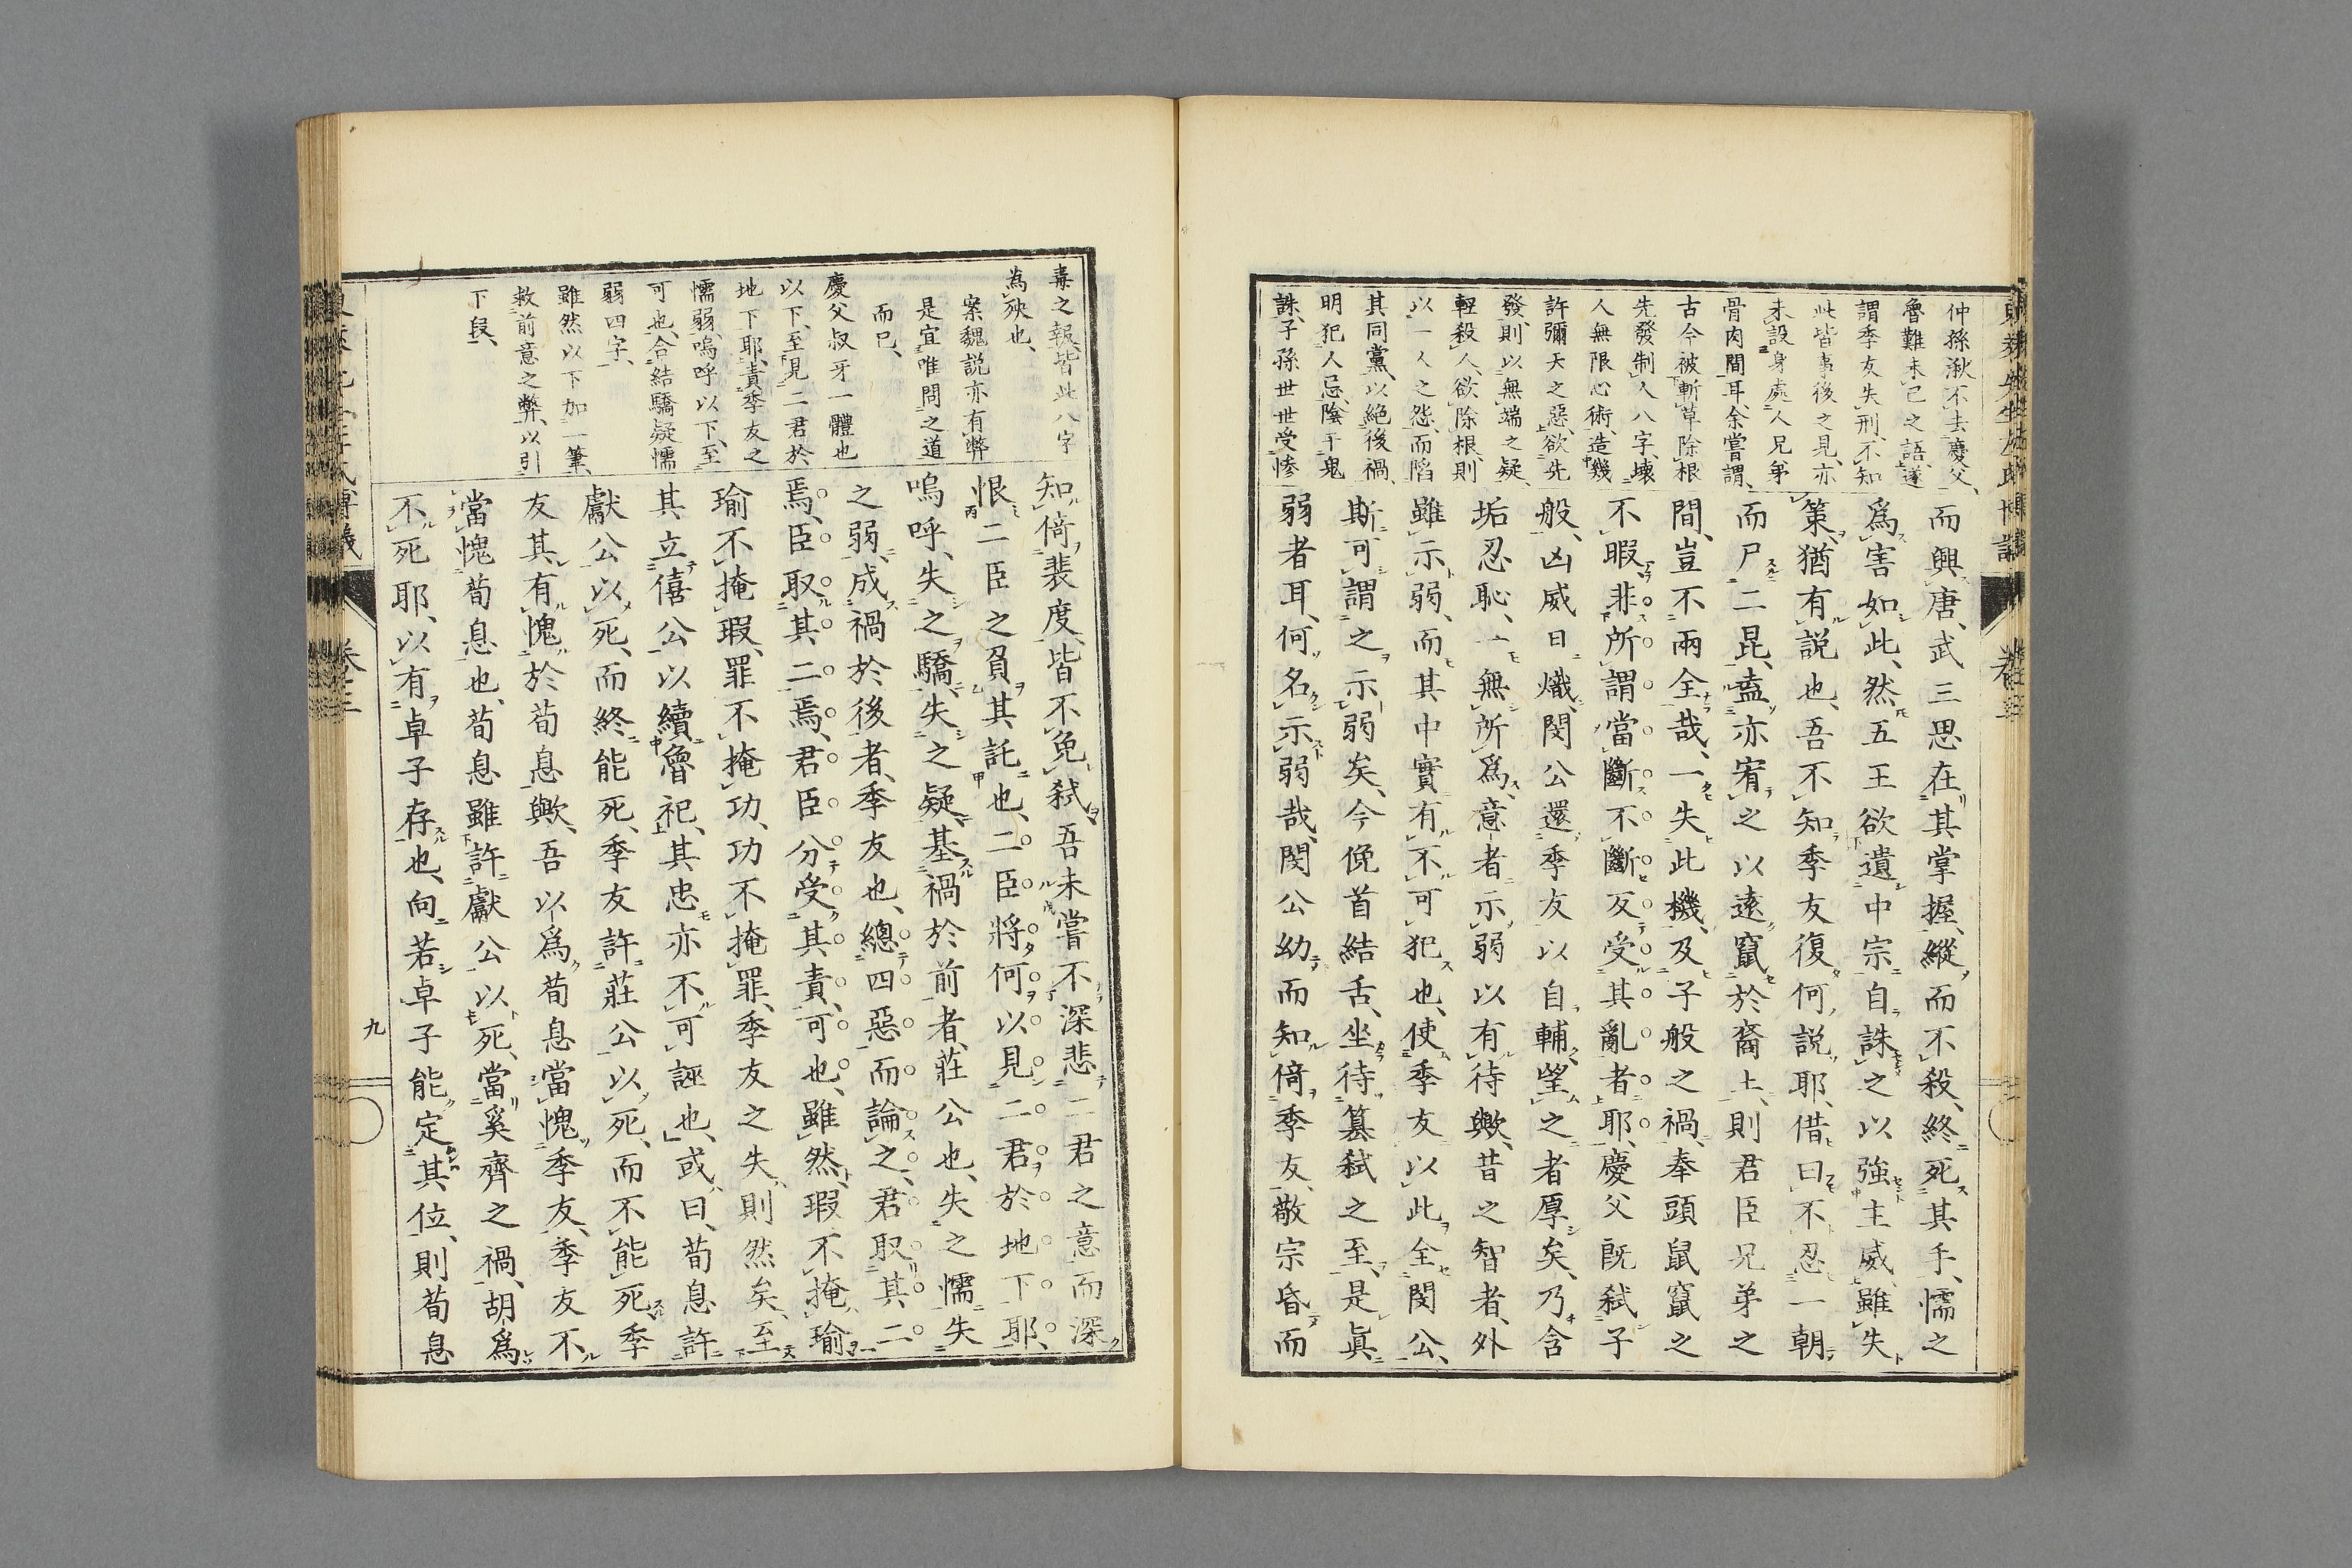 仲孫湫不去慶父、
魯難未已之語、遂
謂季友失刑、不知
此皆事後之見、亦
未設身處人兄弟
骨肉間耳、余嘗謂、
古今被斬草除根
先發制人八字、壞
人無限心術、造幾
許彌天之惡、欲先
發、則以無端之疑、
輕殺人、欲除根、則
以一人之怨、而陷
其同黨、以絶後禍、
明犯人忌、陰干鬼
誅、子孫世世受慘
而興、唐武三思在其掌握、縱而不殺、終死其手、懦之
爲害如此、然五王欲遺中宗自誅之以強主威、雖失
策、猶有説也、吾不知季友復何説耶、借曰不忍一朝
而尸二昆、盍亦宥之以遠竄於裔土、則君臣兄弟之
間、豈不兩全哉、一失此機、及子般之禍、奉頭鼠竄之
不暇、非所謂當斷不斷反受其亂者耶、慶父既弑子
般、凶威日熾、閔公還季友以自輔、望之者厚矣、乃含
垢忍恥、一無所爲、意者示弱以有待歟、昔之智者、外
雖示弱、而其中實有不可犯也、使季友以此全閔公、
斯可謂之示弱矣、今俛首結舌、坐待簒弑之至、是眞
弱者耳、何名示弱哉、閔公幼而知倚季友、敬宗昏而
毒之報、皆此八字
為殃也、
案魏説亦有弊
是宜唯問之道
而已、
慶父叔牙一體也
以下、至見二君於
地下耶、責季友之
懦弱、嗚呼以下、至
可也、合結驕疑懦
弱四字、
雖然以下加一筆、
救前意之弊、以引
下段、
知倚裴度、皆不免弑、吾未嘗不深悲二君之意而深
恨二臣之負其託也、二臣將何以見二君於地下耶、
嗚呼、失之驕、失之疑、基禍於前者、莊公也、失之懦、失
之弱、成禍於後者、季友也、總四惡而論之、君取其二
焉、臣取其二焉、君臣分受其責、可也、雖然、瑕不掩瑜、
瑜不掩瑕、罪不掩功、功不掩罪、季友之失、則然矣、至
其立僖公以續魯祀、其忠亦不可誣也、或曰、荀息許
獻公以死、而終能死、季友許莊公以死、而不能死、季
友其有愧於荀息歟、吾以爲荀息當愧季友、季友不
當愧荀息也、荀息雖許獻公以死、當奚齊之禍、胡爲
不死耶、以有卓子存也、向若卓子能定其位、則荀息
卷三
九